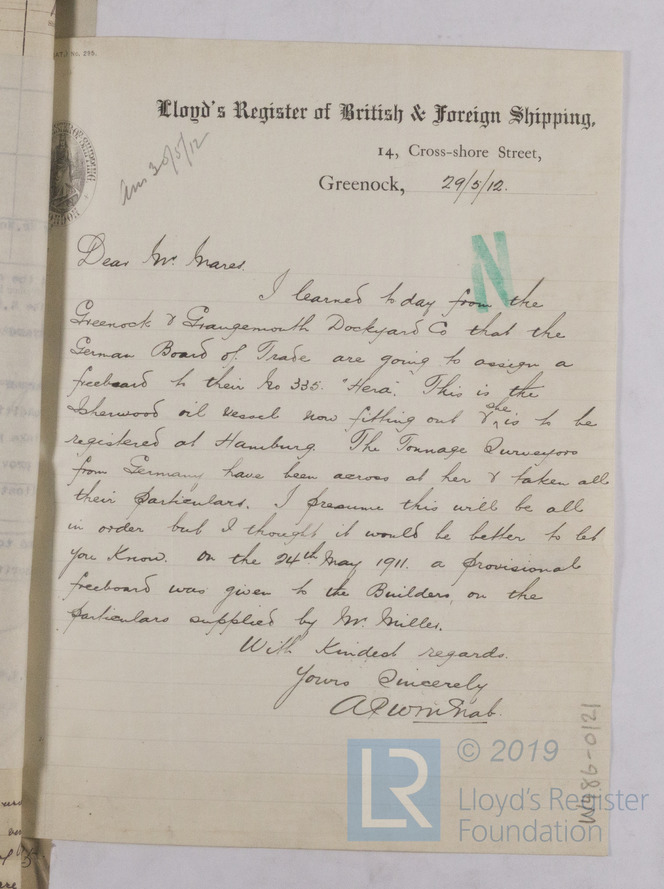 No. 295.
Lloyd's Register of British & Foreign Shipping,
14, Cross-shore Street,
Greenock, 29/5/12.
Ans 30/5/12
N
Dear Mr. Mares.
I learned today from the
Greenock & Grangemouth Dockyard Co that the
German Board of Trade are going to assign a
freeboard to their No 335. "Hera". This is the
Isherwood oil vessel now fitting out & she is to be
registered at Hamburg. The Tonnage Surveyors
from Germany have been across at her & taken all
their particulars. I presume this will be all
in order but I thought it would be better to let
you know. On the 24th May 1911. a provisional
freeboard was given to the Builders, on the
particulars supplied by Mr. Miller.
With kindest regards.
Yours Sincerely
W986-0121
LR
© 2019
Lloyd's Register
Foundation